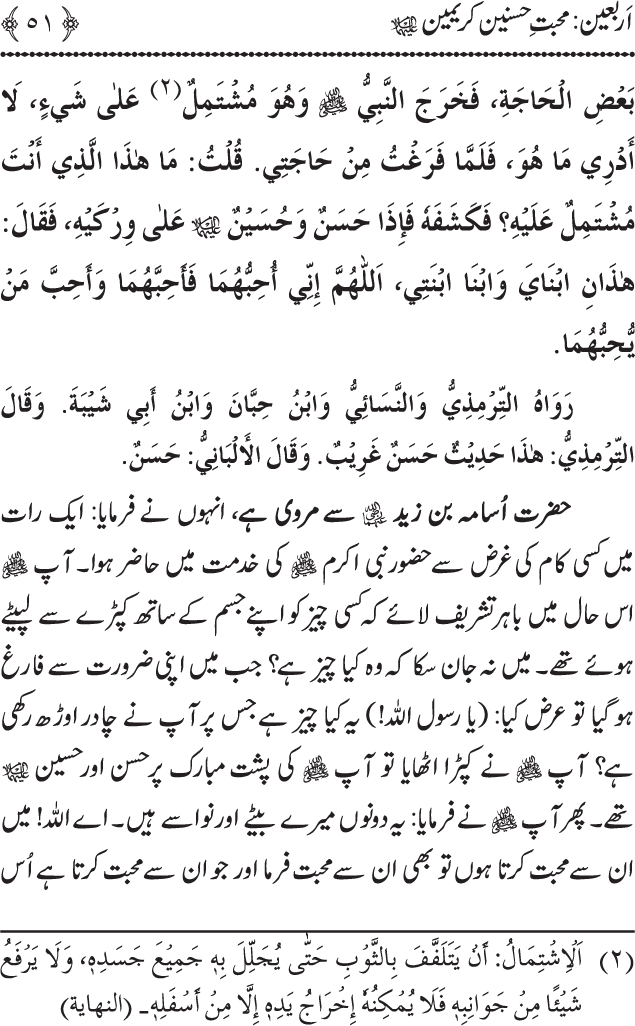 اَربعین: محبتِ حسنین کریمین علیہما السلام ﴿٥١﴾
بَعْضِ الْحَاجَةِ، فَخَرَجَ النَّبِيُّ ﷺ وَهُوَ مُشْتَمِلٌ(٢) عَلٰى شَيْءٍ، لَا
أَدْرِي مَا هُوَ، فَلَمَّا فَرَغْتُ مِنْ حَاجَتِي. قُلْتُ: مَا هٰذَا الَّذِي أَنْتَ
مُشْتَمِلٌ عَلَيْهِ؟ فَكَشَفَهٗ فَإِذَا حَسَنٌ وَحُسَيْنٌ علیہما السلام عَلٰى وِرْكَيْهِ، فَقَالَ:
هٰذَانِ ابْنَايَ وَابْنَا ابْنَتِي، اَللّٰهُمَّ إِنِّي أُحِبُّهُمَا فَأَحِبَّهُمَا وَأَحِبَّ مَنْ
يُّحِبُّهُمَا.
رَوَاهُ التِّرْمِذِيُّ وَالنَّسَائِيُّ وَابْنُ حِبَّانَ وَابْنُ أَبِي شَيْبَةَ. وَقَالَ
التِّرْمِذِيُّ: هٰذَا حَدِيْثٌ حَسَنٌ غَرِيْبٌ. وَقَالَ الْأَلْبَانِيُّ: حَسَنٌ.
حضرت اُسامہ بن زید رضی اللہ عنہما سے مروی ہے، انہوں نے فرمایا: ایک رات
میں کسی کام کی غرض سے حضور نبی اکرم ﷺ کی خدمت میں حاضر ہوا۔ آپ ﷺ
اس حال میں باہر تشریف لائے کہ کسی چیز کو اپنے جسم کے ساتھ کپڑے سے لپیٹے
ہوئے تھے۔ میں نہ جان سکا کہ وہ کیا چیز ہے؟ جب میں اپنی ضرورت سے فارغ
ہو گیا تو عرض کیا: (یا رسول اللہ!) یہ کیا چیز ہے جس پر آپ نے چادر اوڑھ رکھی
ہے؟ آپ ﷺ نے کپڑا اٹھایا تو آپ ﷺ کی پشت مبارک پر حسن اور حسین علیہما السلام
تھے۔ پھر آپ ﷺ نے فرمایا: یہ دونوں میرے بیٹے اور نواسے ہیں۔ اے اللہ! میں
ان سے محبت کرتا ہوں تو بھی ان سے محبت فرما اور جو ان سے محبت کرتا ہے اُس
(٢) اَلْاِشْتِمَالُ: أَنْ يَتَلَفَّفَ بِالثَّوْبِ حَتّٰى يُجَلِّلَ بِهٖ جَمِيْعَ جَسَدِهٖ، وَلَا يَرْفَعُ
شَيْئًا مِنْ جَوَانِبِهٖ فَلَا يُمْكِنُهٗ إِخْرَاجُ يَدِهٖ إِلَّا مِنْ أَسْفَلِهٖ۔ (النهاية)